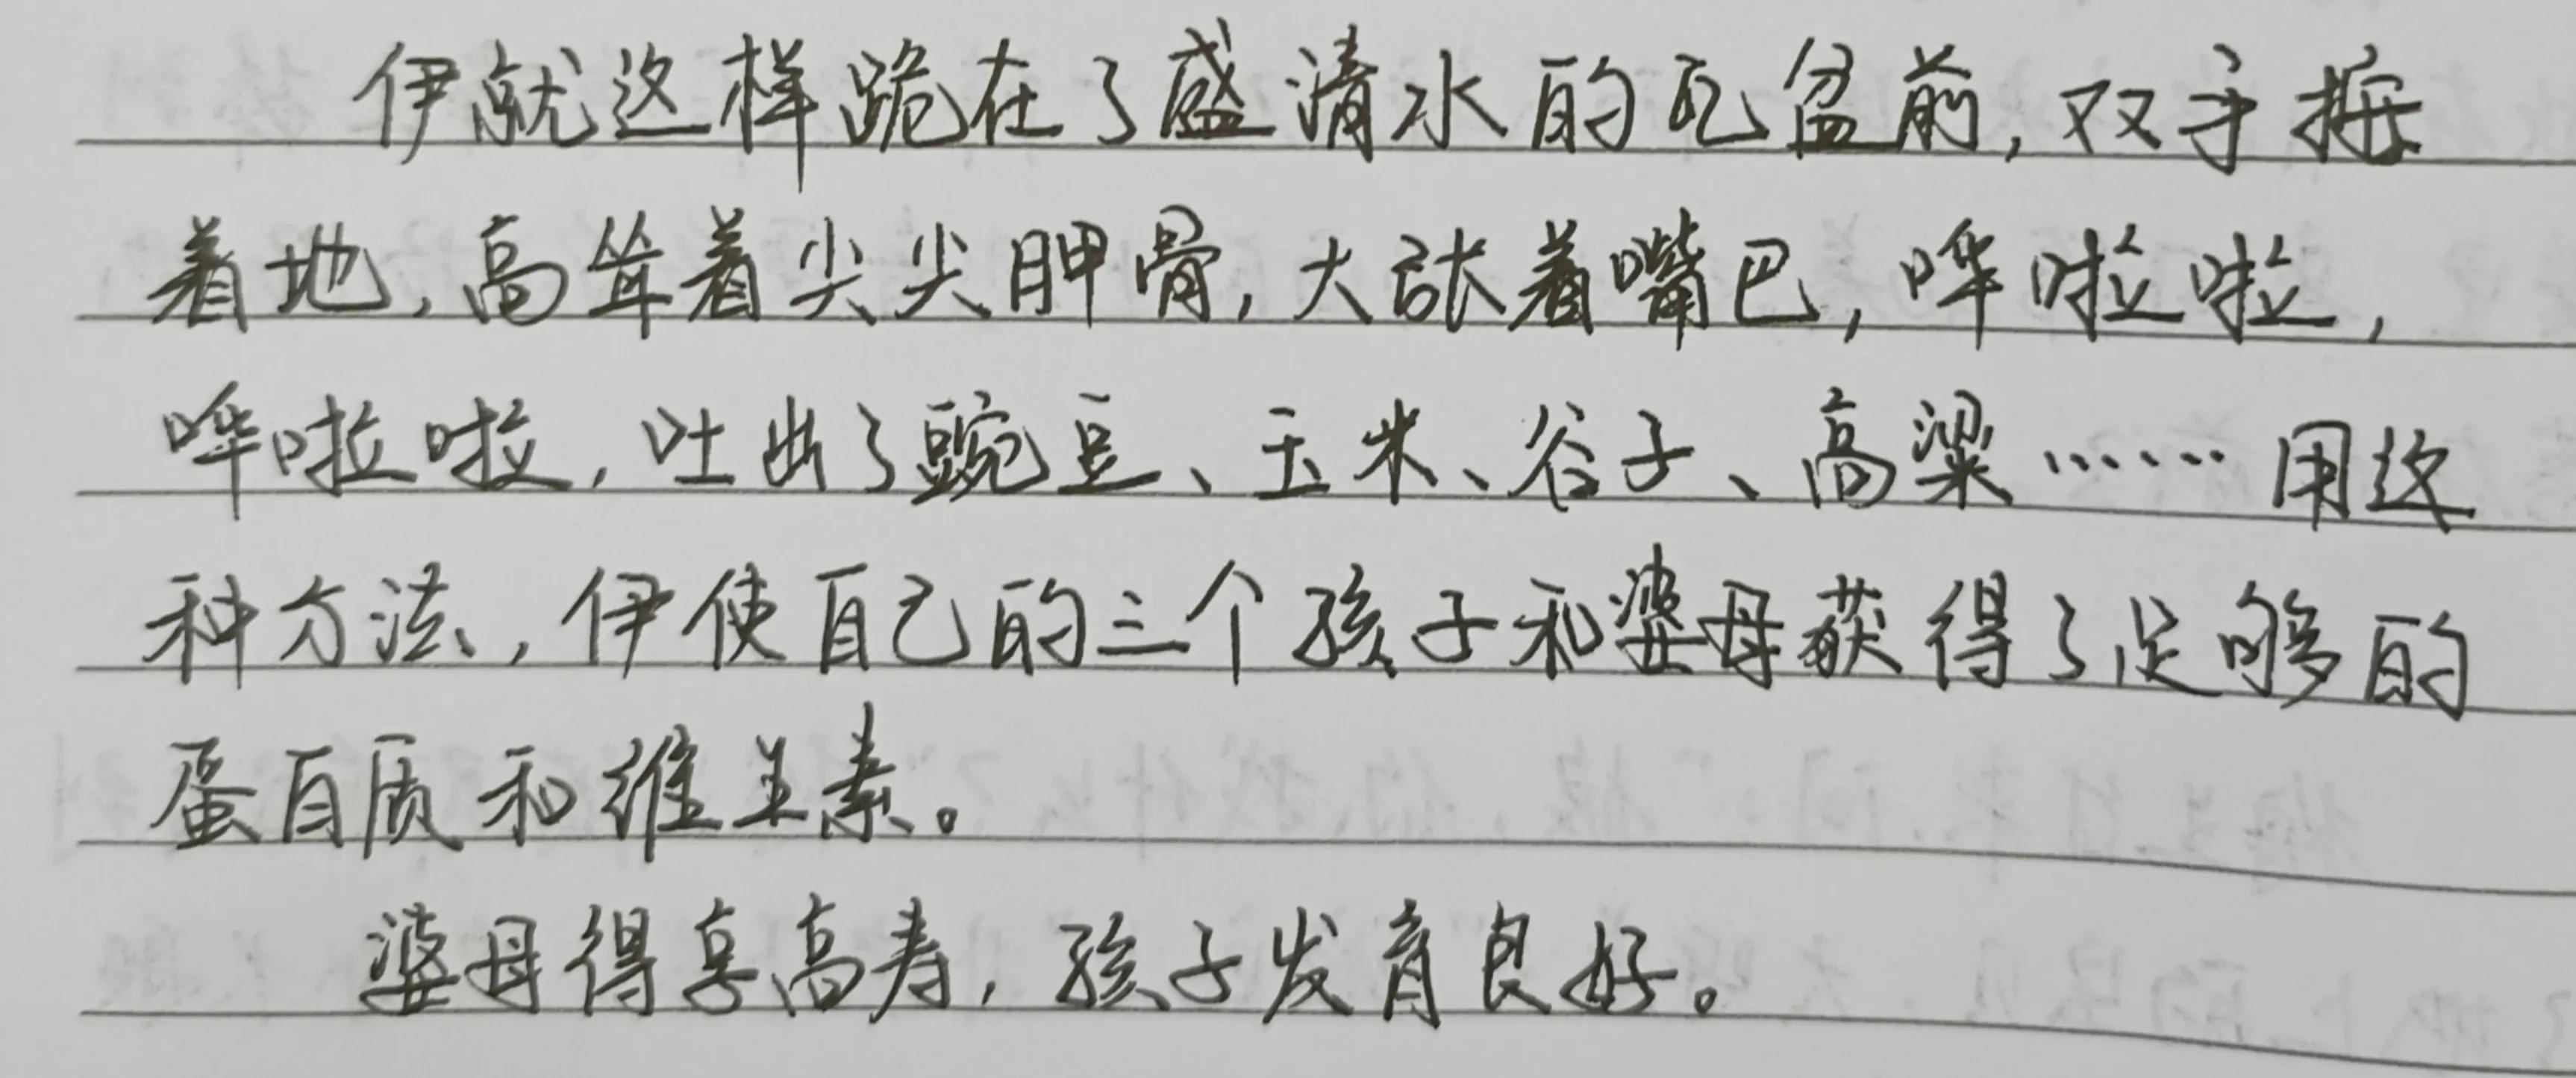 伊就这样跪在了盛清水的瓦盆前，双手拤
着地，高耸着尖尖胛骨，大张着嘴巴，哗啦啦，
哗啦啦，吐出了豌豆、玉米、谷子、高粱……用这
种方法，伊使自己的三个孩子和婆母获得了足够的
蛋白质和维生素。
婆母得享高寿，孩子发育良好。